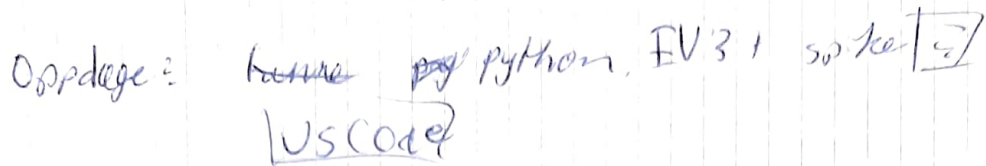 Oppdage: python. EV3, spike
VSCode